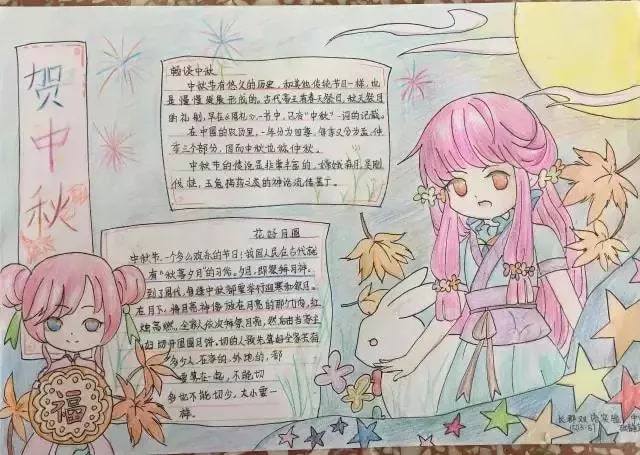 贺中秋
畅谈中秋
中秋节有悠久的历史，和其他传统节日一样，也
是慢慢发展形成的。古代帝王有春天祭日，秋天祭月
的礼制，早在《周礼》一书中，已有“中秋”一词的记载。
在中国的农历里，一年分为四季，每季又分为孟、仲、
季三个部分，因而中秋也称仲秋。
中秋节的传说是非常丰富的，嫦娥奔月，吴刚
伐桂，玉兔捣药之类的神话流传甚广。
花好月圆
中秋节，一个多么欢乐的节日！我国人民在古代就
有“秋暮夕月”的习俗。夕月，即祭拜月神。
到了周代，每逢中秋都要举行迎寒和祭月。
在月下，将月亮神像放在月亮的那个方向，红
烛高燃，全家人依次拜祭月亮，然后由当家主
妇切开团圆月饼。切的人预先算好全家共有
多少人，在家的、外地的，都
要算在一起，不能切
多也不能切少，大小要一
样。
福
长郡双